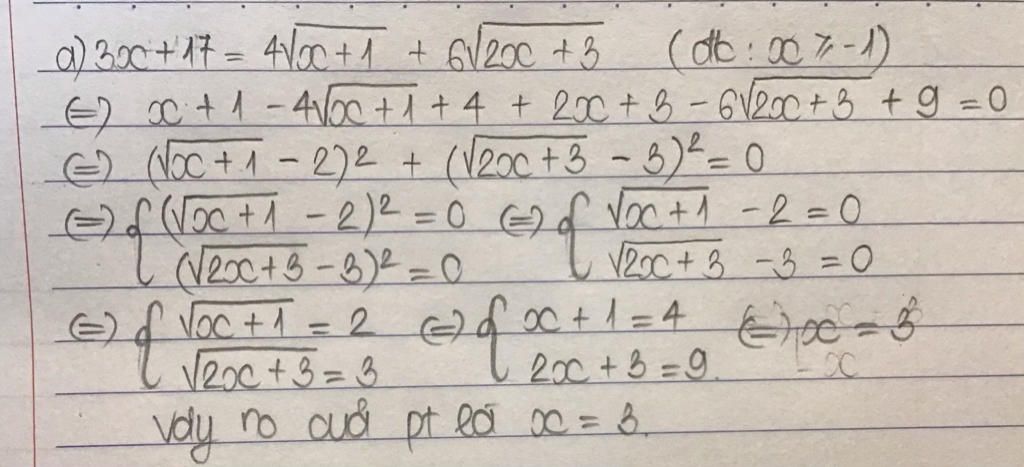 a) 3x + 17 = 4√(x+1) + 6√(2x+3) (đk : x ≥ -1)
⇔ x + 1 - 4√(x+1) + 4 + 2x + 3 - 6√(2x+3) + 9 = 0
⇔ (√(x+1) - 2)² + (√(2x+3) - 3)² = 0
⇔ { (√(x+1) - 2)² = 0 ⇔ { √(x+1) - 2 = 0
(√(2x+3) - 3)² = 0 √(2x+3) - 3 = 0
⇔ { √(x+1) = 2 ⇔ { x + 1 = 4 ⇔ x = 3
√(2x+3) = 3 2x + 3 = 9
Vậy no của pt là x = 3.